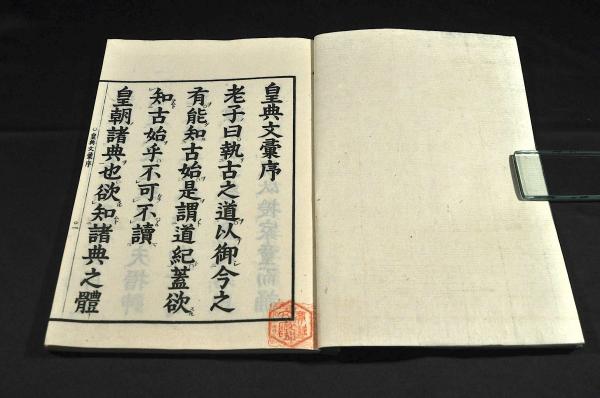 皇典文彙序
老子曰執古之道以御今之
有能知古始是謂道紀蓋欲
知古始乎不可不讀
皇朝諸典也欲知諸典之體
皇典文彙序